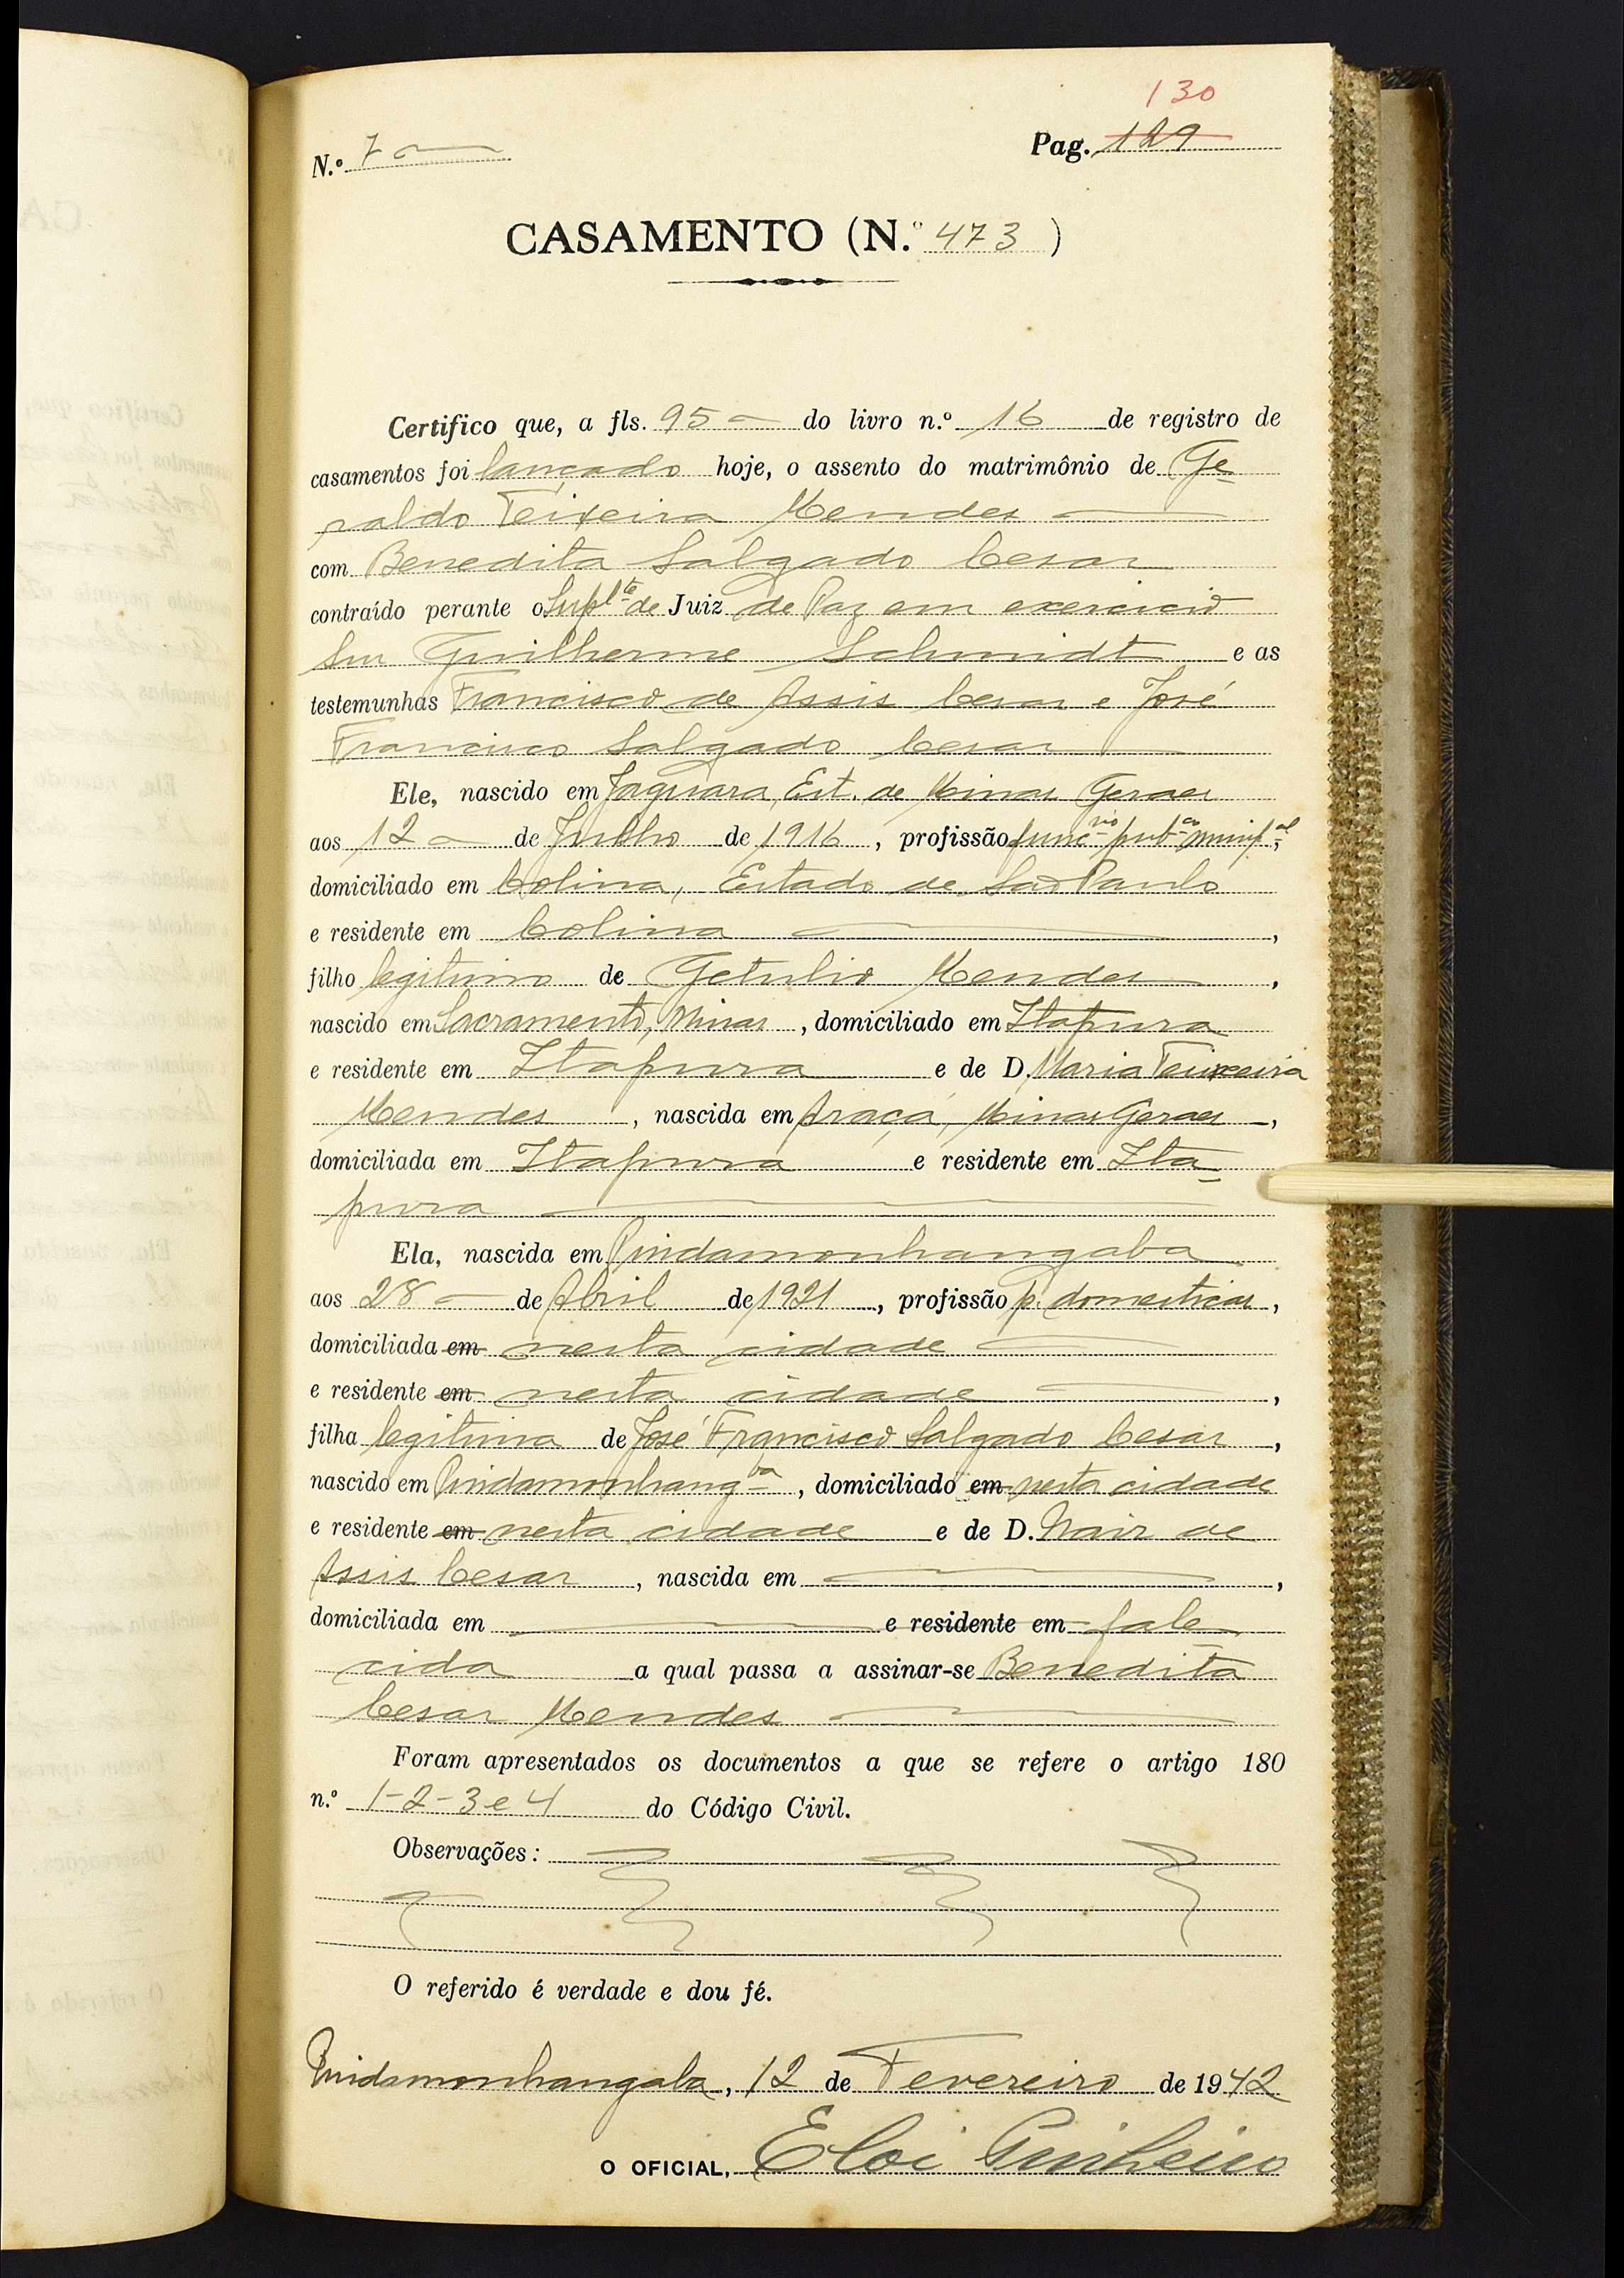 130
N.º 7 Pag. 129
CASAMENTO (N.º 473 )
Certifico que, a fls. 95 do livro n.º 16 de registro de
casamentos foi lançado hoje, o assento do matrimônio de Ge-
raldo Teixeira Mendes
com Benedita Salgado Cesar
contraído perante o Supl.te de Juiz de Paz em exercicio
Snr Guilherme Schmidt e as
testemunhas Francisco de Assis Cesar e José
Francisco Salgado Cesar
Ele, nascido em Jaguara, Est. de Minas Geraes
aos 12 de Julho de 1916 , profissão funcnio pubco munipal,
domiciliado em Colina, Estado de São Paulo
e residente em Colina ,
filho legitimo de Getulio Mendes ,
nascido em Sacramento, Minas , domiciliado em Itapura
e residente em Itapura e de D. Maria Teixeira
Mendes , nascida em Araçá, Minas Geraes ,
domiciliada em Itapura e residente em Ita-
pura
Ela, nascida em Pindamonhangaba
aos 28 de Abril de 1921 , profissão p. domesticas ,
domiciliada em nesta cidade
e residente em nesta cidade ,
filha legitima de José Francisco Salgado Cesar ,
nascido em Pindamonhangba , domiciliado em nesta cidade
e residente em nesta cidade e de D. Nair de
Assis Cesar , nascida em ,
domiciliada em e residente em fale
cida a qual passa a assinar-se Benedita
Cesar Mendes
Foram apresentados os documentos a que se refere o artigo 180
n.º 1-2-3 e 4 do Código Civil.
Observações :
O referido é verdade e dou fé.
Pindamonhangaba, 12 de Fevereiro de 1942
O OFICIAL, Eloi Pinheiro